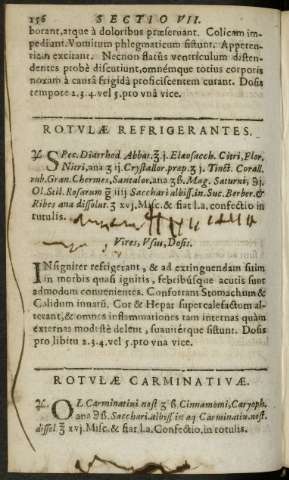 156 SECTIO VII.
borant, atque à doloribus præservant. Colicam im-
pediant. Vomitum phlegmaticum sistunt. Appeten-
tiam excitant. Necnon flatus ventriculum disten-
dentes probè discutiunt, omnemque totius corporis
noxam à causâ frigidâ proficiscentem curant. Dosis
tempore 2.3.4. vel 5. pro vnâ vice.
ROTULÆ REFRIGERANTES.
℞ SPec. Diarrhod. Abbat. ʒ j. Elæosacch. Citri, Flor.
Nitri, ana ʒ ij. Crystallor. præp. ʒ j. Tinct. Corall.
rub. Gran. Chermes, Santalor. ana ʒ ß. Mag. Saturni, ℈j.
Ol. Stil. Rosarum g iiij Sacchari albiss. in Suc. Berber. &
Ribes ana dissolut. ℥ xvj. Misc. & fiat l.a. confectio in
rotulis.
Vires, Vsus, Dosis.
INsigniter refrigerant, & ad extinguendam sitim
in morbis quasi ignitis, febribúsque acutis sunt
admodum convenientes. Confortant Stomachum &
Calidum innatū. Cor & Hepar supercalefactum al-
terant, & omnes inflammationes tam internas quàm
externas modestè delent, suavitérque sistunt. Dosis
pro libitu 2.3.4. vel 5. pro vna vice.
ROTVLÆ CARMINATIVÆ.
℞ OL. Carminativi nost ʒ ß. Cinnamomi, Caryoph.
ana ℈ß. Sacchari. albiss in aq Carminativ. nost.
dissol ℥ xvj. Misc. & fiat l.a. Confectio, in rotulis.